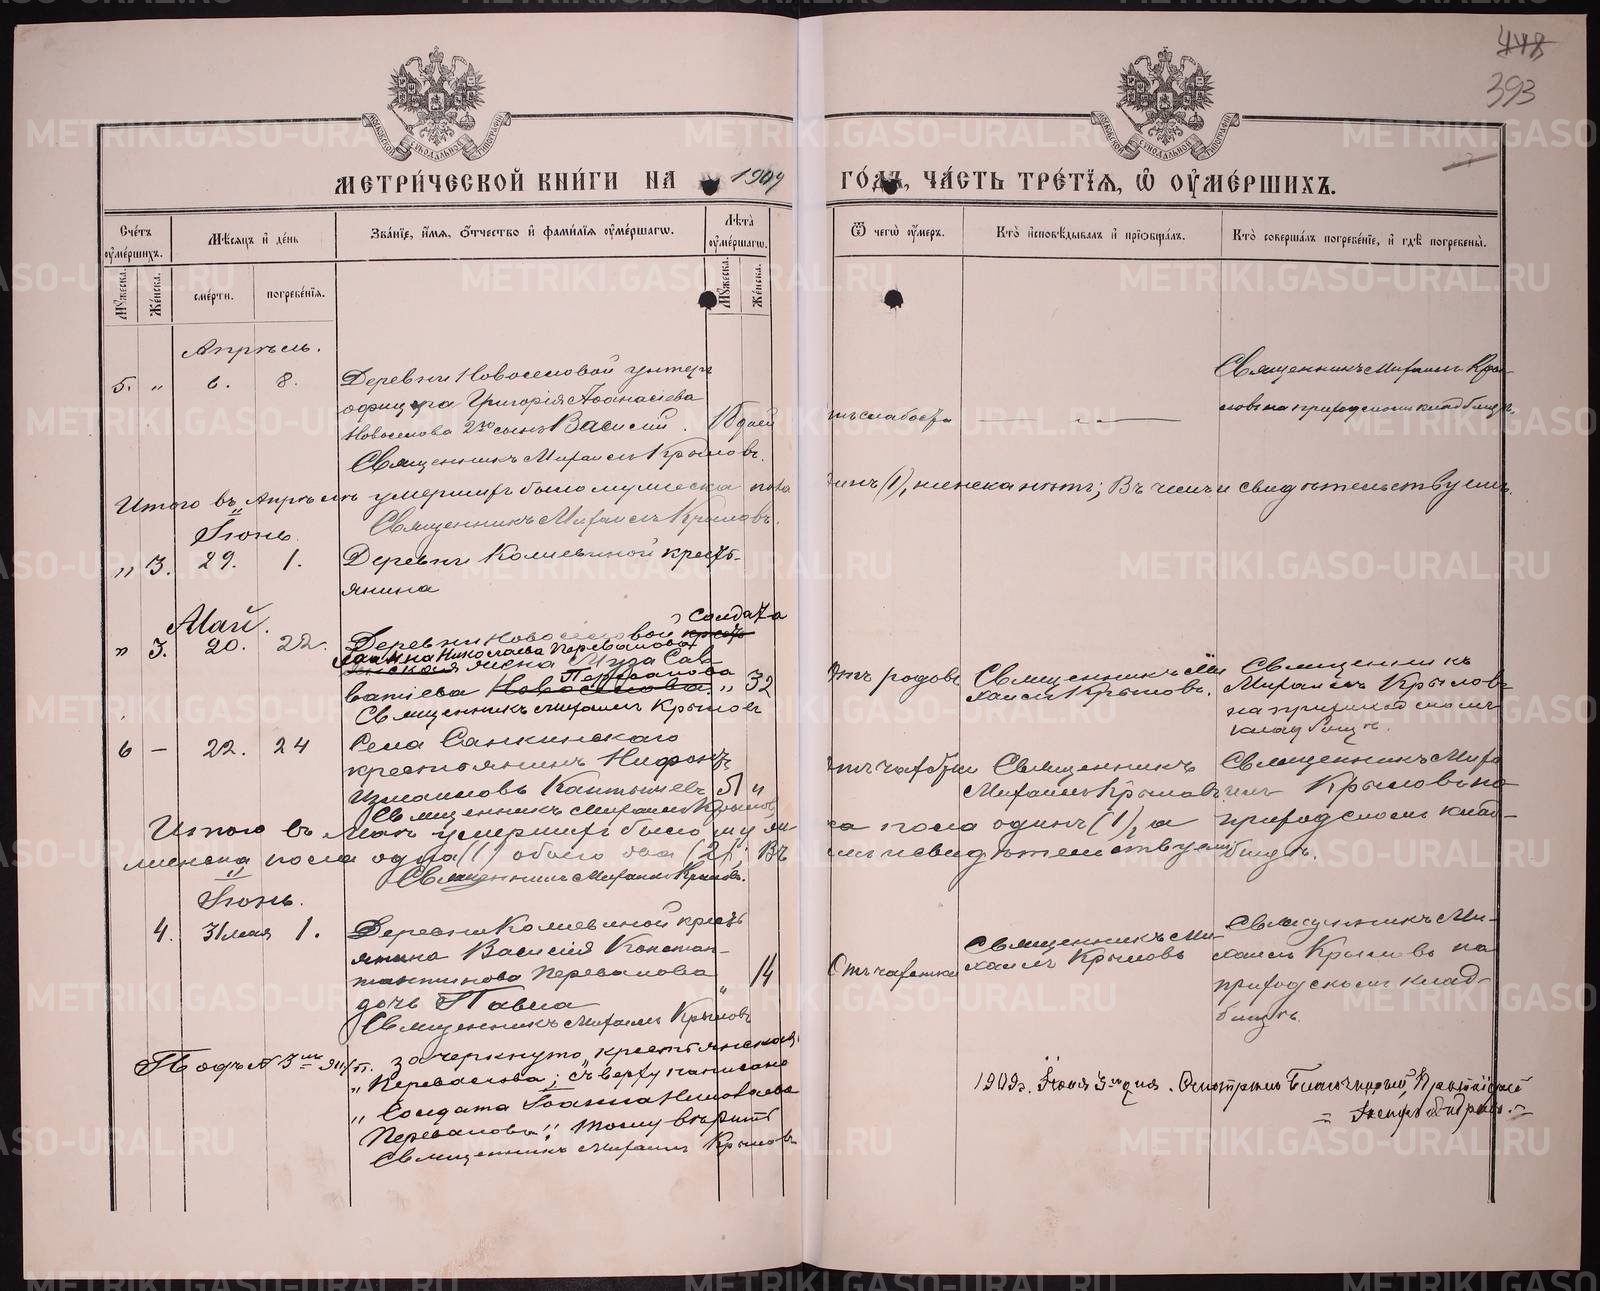 448
393
МЕТРИ́ЧЕСКОЙ КНИ́ГИ НА 1909 ГО́ДЪ, ЧА́СТЬ ТРЕ́ТІЯ, Ѡ ОУМЕ́РШИХЪ.
Сче́тъ оуме́ршихъ.
Мѣсяцъ и день
Зва́нїе, и́мя, о́тчество и фами́лїя оуме́ршагѡ.
Лѣта̀ оуме́ршагѡ.
Ѿ чегѡ̀ оу́меръ.
Кто̀ и҆сповѣ́дывалъ и҆ прїѡбща́лъ.
Кто̀ соверша́лъ погребе́нїе, и҆ гдѣ̀ погребены̀.
Му́жеска.
Же́нска.
сме́рти.
погребе́нїя.
Му́жеска.
Же́нска.
Апрѣль.
5. „ 6. 8. Деревни Новоселовой унтеръ
офицера Григорія Аѳанасіева
Новоселова сынъ Василій. дней
Священникъ Михаилъ Крыловъ.
отъ слабости
Священникъ Михаилъ Кры-
ловъ на приходскомъ кладбищѣ.
Итого въ Апрѣлѣ умершихъ было мужеска пола одинъ (1), женска нѣтъ; Въ чемъ и свидѣтельствуемъ.
Священникъ Михаилъ Крыловъ.
Іюнь.
„ 3. 29. 1. Деревни крестъ-
янина
Май.
„ 3. 20. 22. Деревни Новоселовой солдата
Іоанна Николаева Перевалова
жена Муза Сав-
ватіева Перевалова „ 32
Священникъ Михаилъ Крыловъ
Отъ родовъ
Священникъ Ми-
хаилъ Крыловъ.
Священникъ
Михаилъ Крыловъ
на приходскомъ
кладбищѣ.
6 – 22. 24 Села Санкинскаго
крестьянинъ Нифонтъ
Измаиловъ „
Священникъ Михаилъ Крыловъ
отъ чахотки
Священникъ
Михаилъ Крыловъ
Священникъ Миха
илъ Крыловъ на
приходскомъ клад-
бищѣ.
Итого въ Маѣ умершихъ было муже
ска пола одинъ (1), а
женска пола одна (1) обоего два (2); Въ
чемъ и свидѣтельствуемъ
Священникъ Михаилъ Крыловъ.
Іюнь.
4. 31 мая 1. Деревни кресть
янина Василія Констан-
тинова Перевалова
дочь Павла „ 14
Священникъ Михаилъ Крыловъ
Отъ чахотки
Священникъ Ми-
хаилъ Крыловъ
Священникъ Ми-
хаилъ Крыловъ на
приходскомъ клад-
бищѣ.
Подъ № 3мъ зачеркнуто „крестьянская
„Перевалова; Сверху написано
„Солдата Іоанна Николаева
Перевалова“; тому вѣрить
Священникъ Михаилъ Крыловъ
1909г. Іюня 3го дня. Смотрѣлъ Благочинный,
METRIKI.GASO-URAL.RU